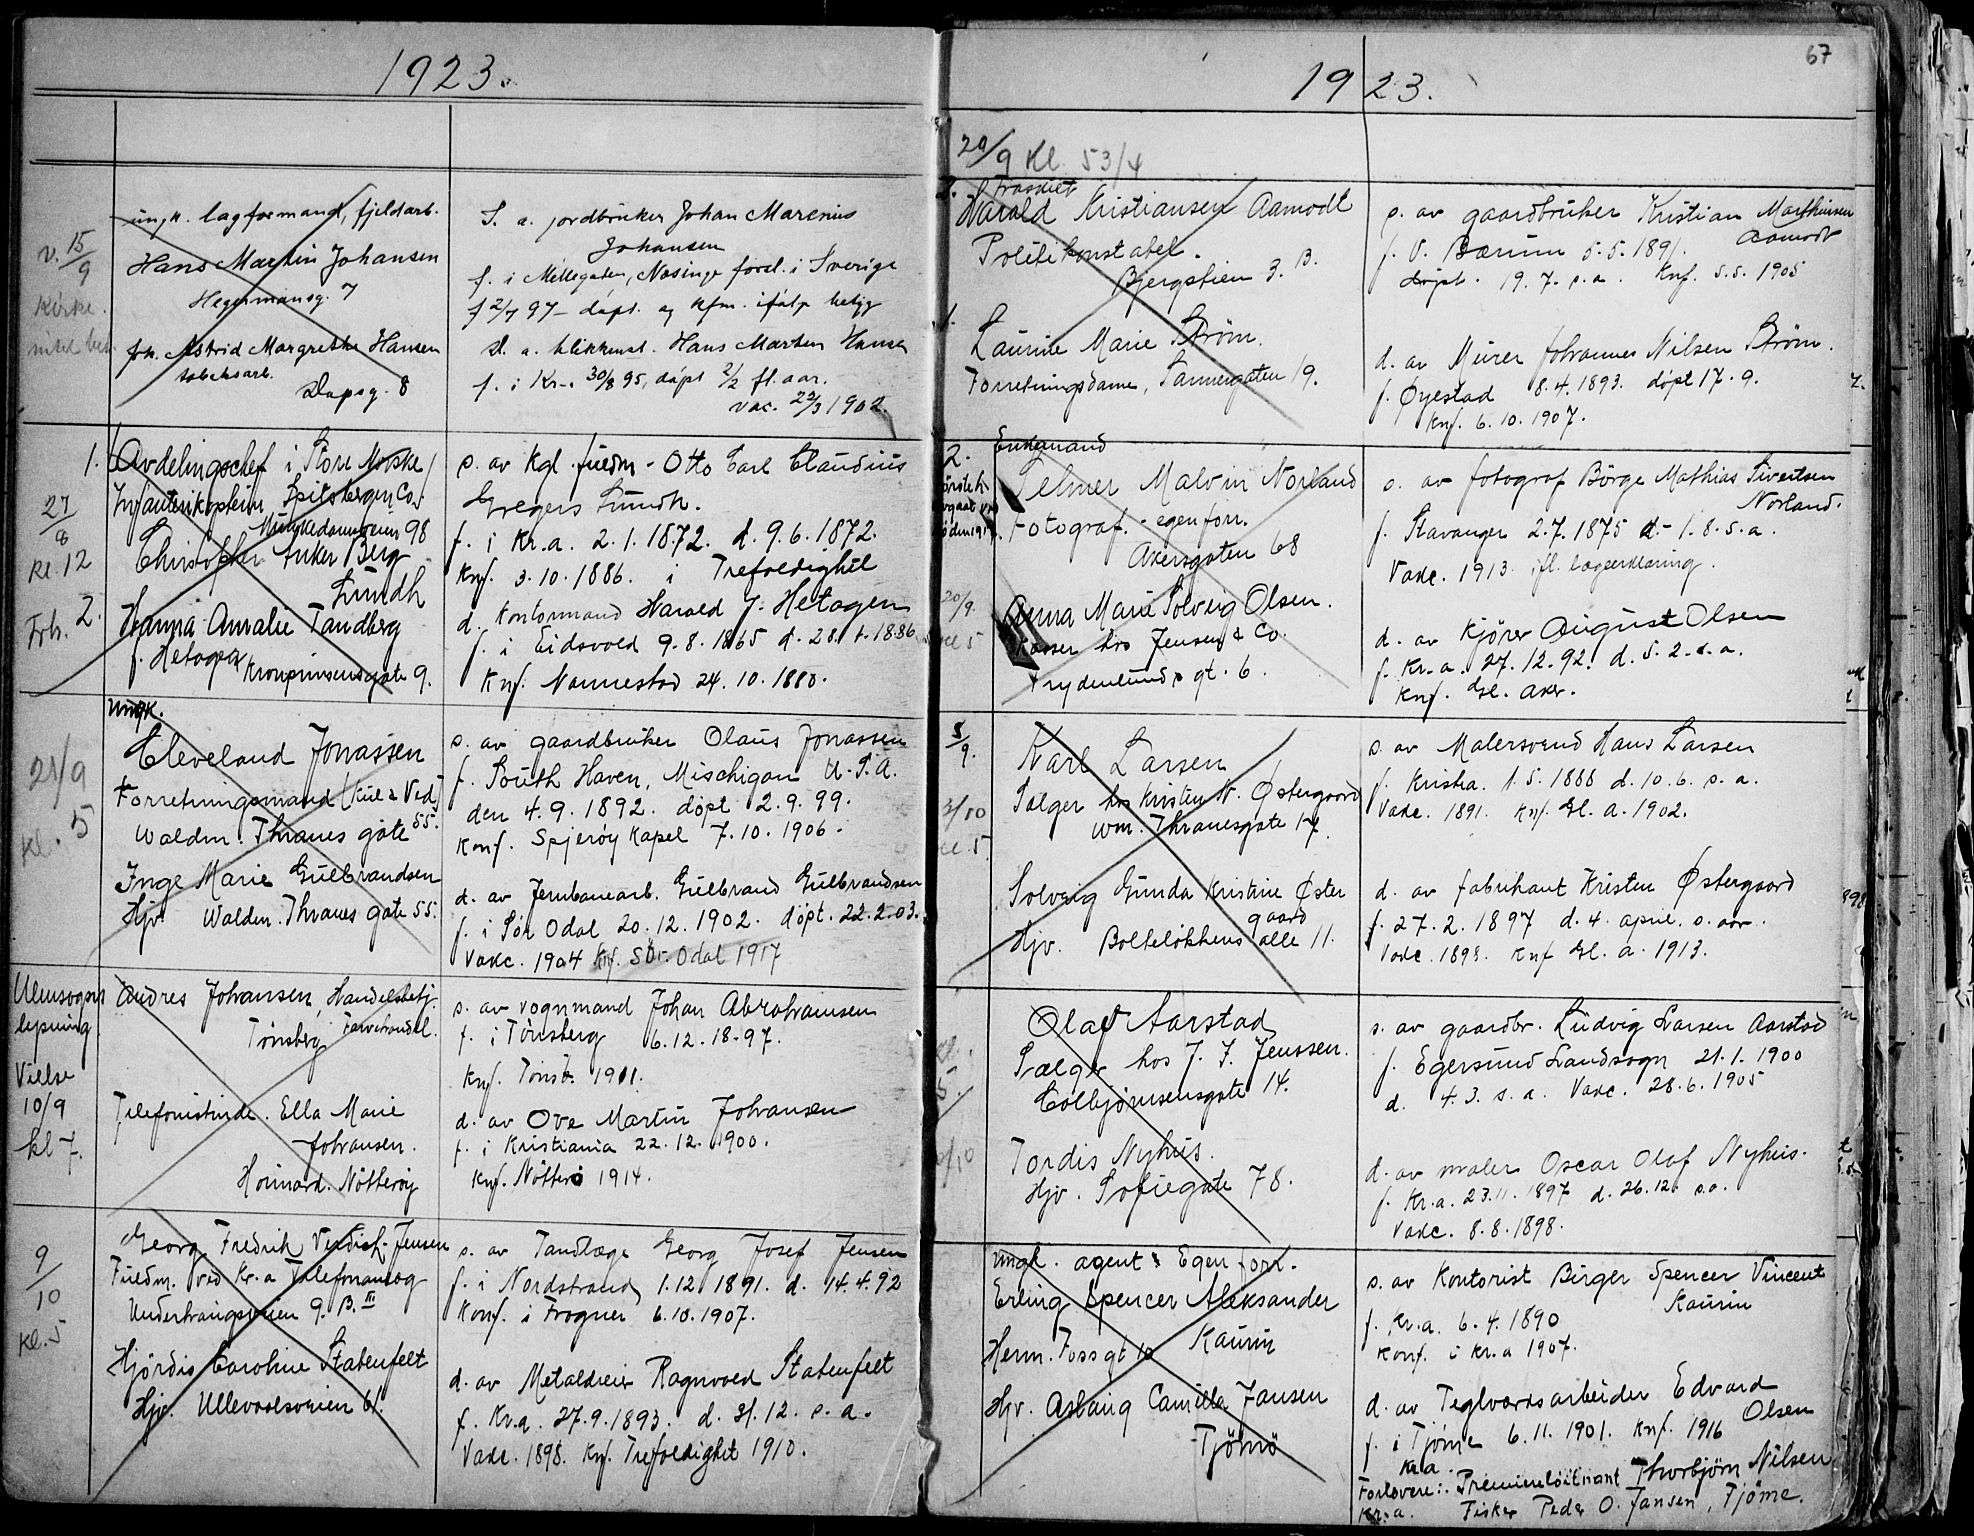 1923.
v. 15/9
Kirke.
ungk. lagformand, fjeldarb.
Hans Martin Johansen
Hegermansg. 7
frk. Astrid Margrethe Hansen
tobaksarb.
Dapsg. 8
S. a. jordbruker Johan Marenius
Johansen
f. i Millegaten, Nösinge forsl. i Sverige
f 2/7 97 – døpt. og kfm. ifølge
D. a. blikkensl. Hans Marten Hansen
f. i Kr. 30/8 95, døpt 2/2 fl. aar.
vac. 22/3 1902.
1.
27/8
Kl. 12
Frh. 2.
Avdelingschef i Store Norske
Infanterikaptein Spitsbergen Co.
Munkedamsveien 98
Christopher Anker Berg
Lundh
Hanna Amalie Tandberg
f. Hetagen Kronprinsensgate 9.
s. av Kgl. fuldm. Otto Carl Claudius
Gregers Lundh.
f. i Kr.a. 2.1.1872. d. 9.6.1872.
Knf. 3.10.1886. i Trefoldighet
d. Kontormand Harald J. Hetagen
f. i Eidsvold 9.8.1865 d. 28. 1886
Knf. Nannestad 24.10.1880.
21/9
Kl. 5
Ungk.
Cleveland Jonassen
Forretningsmand (Kul & Ved)
Waldm. Thranes gate 55.
Inge Marie Gulbrandsen
Hjv. Waldm. Thranes gate 55.
s. av gaardbruker Olaus Jonassen
f. South Haven, Mischigan U.S.A.
den 4.9.1892. døpt 2.9.99.
Konf. Spjerøy Kapel 7.10.1906.
d. av Jernbanearb. Gulbrand Gulbrandsen
f. i Sør Odal 20.12.1902. døpt. 22.2.03.
Vakc. 1904 Knf. Sör. Odal 1917
Utensogns
lysning
Vielse
10/9
kl 7.
Andres Johansen, Handelsbetj.
Tønsberg Farvehandel.
Telefonistinde. Ella Marie
Johansen.
Nötterøy
s. av vognmand Johan Abrahamsen
f. i Tønsberg 6.12.18-97.
Knf. Tønsb. 1911.
d. av Ove Martin Johansen
f. i Kristiania 22.12.1900.
Knf. Nötterö 1914.
9/10
Kl. 5
Georg Fredrik Jensen
Fuldm. ved Kr.a Telefonanlæg
9. B. III
Hjördis Caroline Statenfelt
Hjv. Ullevoalsveien 61.
s. av Tandlæge Georg Josef Jensen
f. i Nordstrand 1.12 1891. d. 14.4.92
Konf. i Frogner 6.10.1907.
d. av Metaldreier Ragnvald Statenfelt
f. Kr.a. 27.9.1893. d. 31.12. s.a.
Vakc. 1898. Knf. Trefoldighet 1910.
67
1923.
29/9 Kl. 53/4
2. Fraskilt
Harald Kristiansen Aamodt
Politikonstabel.
Bjergstien 3. B.
1.
Laurine Marie Strøm.
Forretningsdame, Sannergaten 19.
s. av gaardbruker Kristian Marthinsen
Aamodt
f. V. Bærum 5.5.1891.
døpt. 19.7. s.a. Knf. 5.5. 1905
d. av Murer Johannes Nilsen Strøm.
f. Øyestad 8.4.1893. døpt 17.9.
Knf. 6.10.1907.
2.
Enkemand
Telmer Malvin Norland
Fotograf. - egen forr.
Akersgaten 68
20/9.
Kl 5
Anna Marie Solveig Olsen.
Kasser hos Jensen & Co.
Frydenlunds gt. 6.
s. av fotograf Börge Mathias Sivertsen
Norland.
f. Stavanger 2.7.1875 d. 1.8.s.a.
Vakc. 1913 ifl. lægeerklæring.
d. av Kjører August Olsen
f. Kr.a. 27.12.92. d. 5.2.s.a.
Knf. Gl. Aker.
5/9.
3/10
Kl 5.
Karl Larsen
Sælger hos Kristen N. Østergaard
Wm. Thranesgate 17.
Solveig Gunda Kristine Øster
gaard
Hjv. Bolteløkkens alle 11.
s. av Malersvend Hans Larsen
f. Kristia. 1.5.1888 d. 10.6. s.a.
Vakc. 1891. Knf. Gl. A. 1902.
d. av fabrikant Kristen Østergaard
f. 27.2.1897 d. 4. april. s. aar.
Vakc. 1898. Knf Gl. a. 1913.
Olaf Aarstad
Sælger hos J. J. Jenssen.
Colbjørnsensgate 14.
Tordis Nyhus.
Hjv. Sofiegate 78.
s. av gaardbr. Ludvig Larsen Aarstad
f. Egersund Landsogn 21.1.1900
d. 4.3. s.a. Vakc. 28.6.1905
d. av maler Oscar Olaf Nyhus.
f. Kr.a. 23.11.1897 d. 26.12. s.a.
Vakc. 8.8.1898.
Ungk. agent: Egen forr.
Erling Spencer Aleksander
Kaurin
Herm. Foss gt 10
Hjv. Aslaug Camilla Jansen
Tjömö
s. av Kontorist Birger Spencer Vincent
Kaurin
f. Kr.a. 6.4.1890
Konf. i Kr.a 1907.
d. av Teglværksarbeider Edvard
Olsen
f. i Tjøme 6.11.1901. Knf. 1916
Kr.a
Forlovere: Premierløitnant Thorbjørn Nilsen
Kr.a. Fisker Peder O. Jansen, Tjöme.